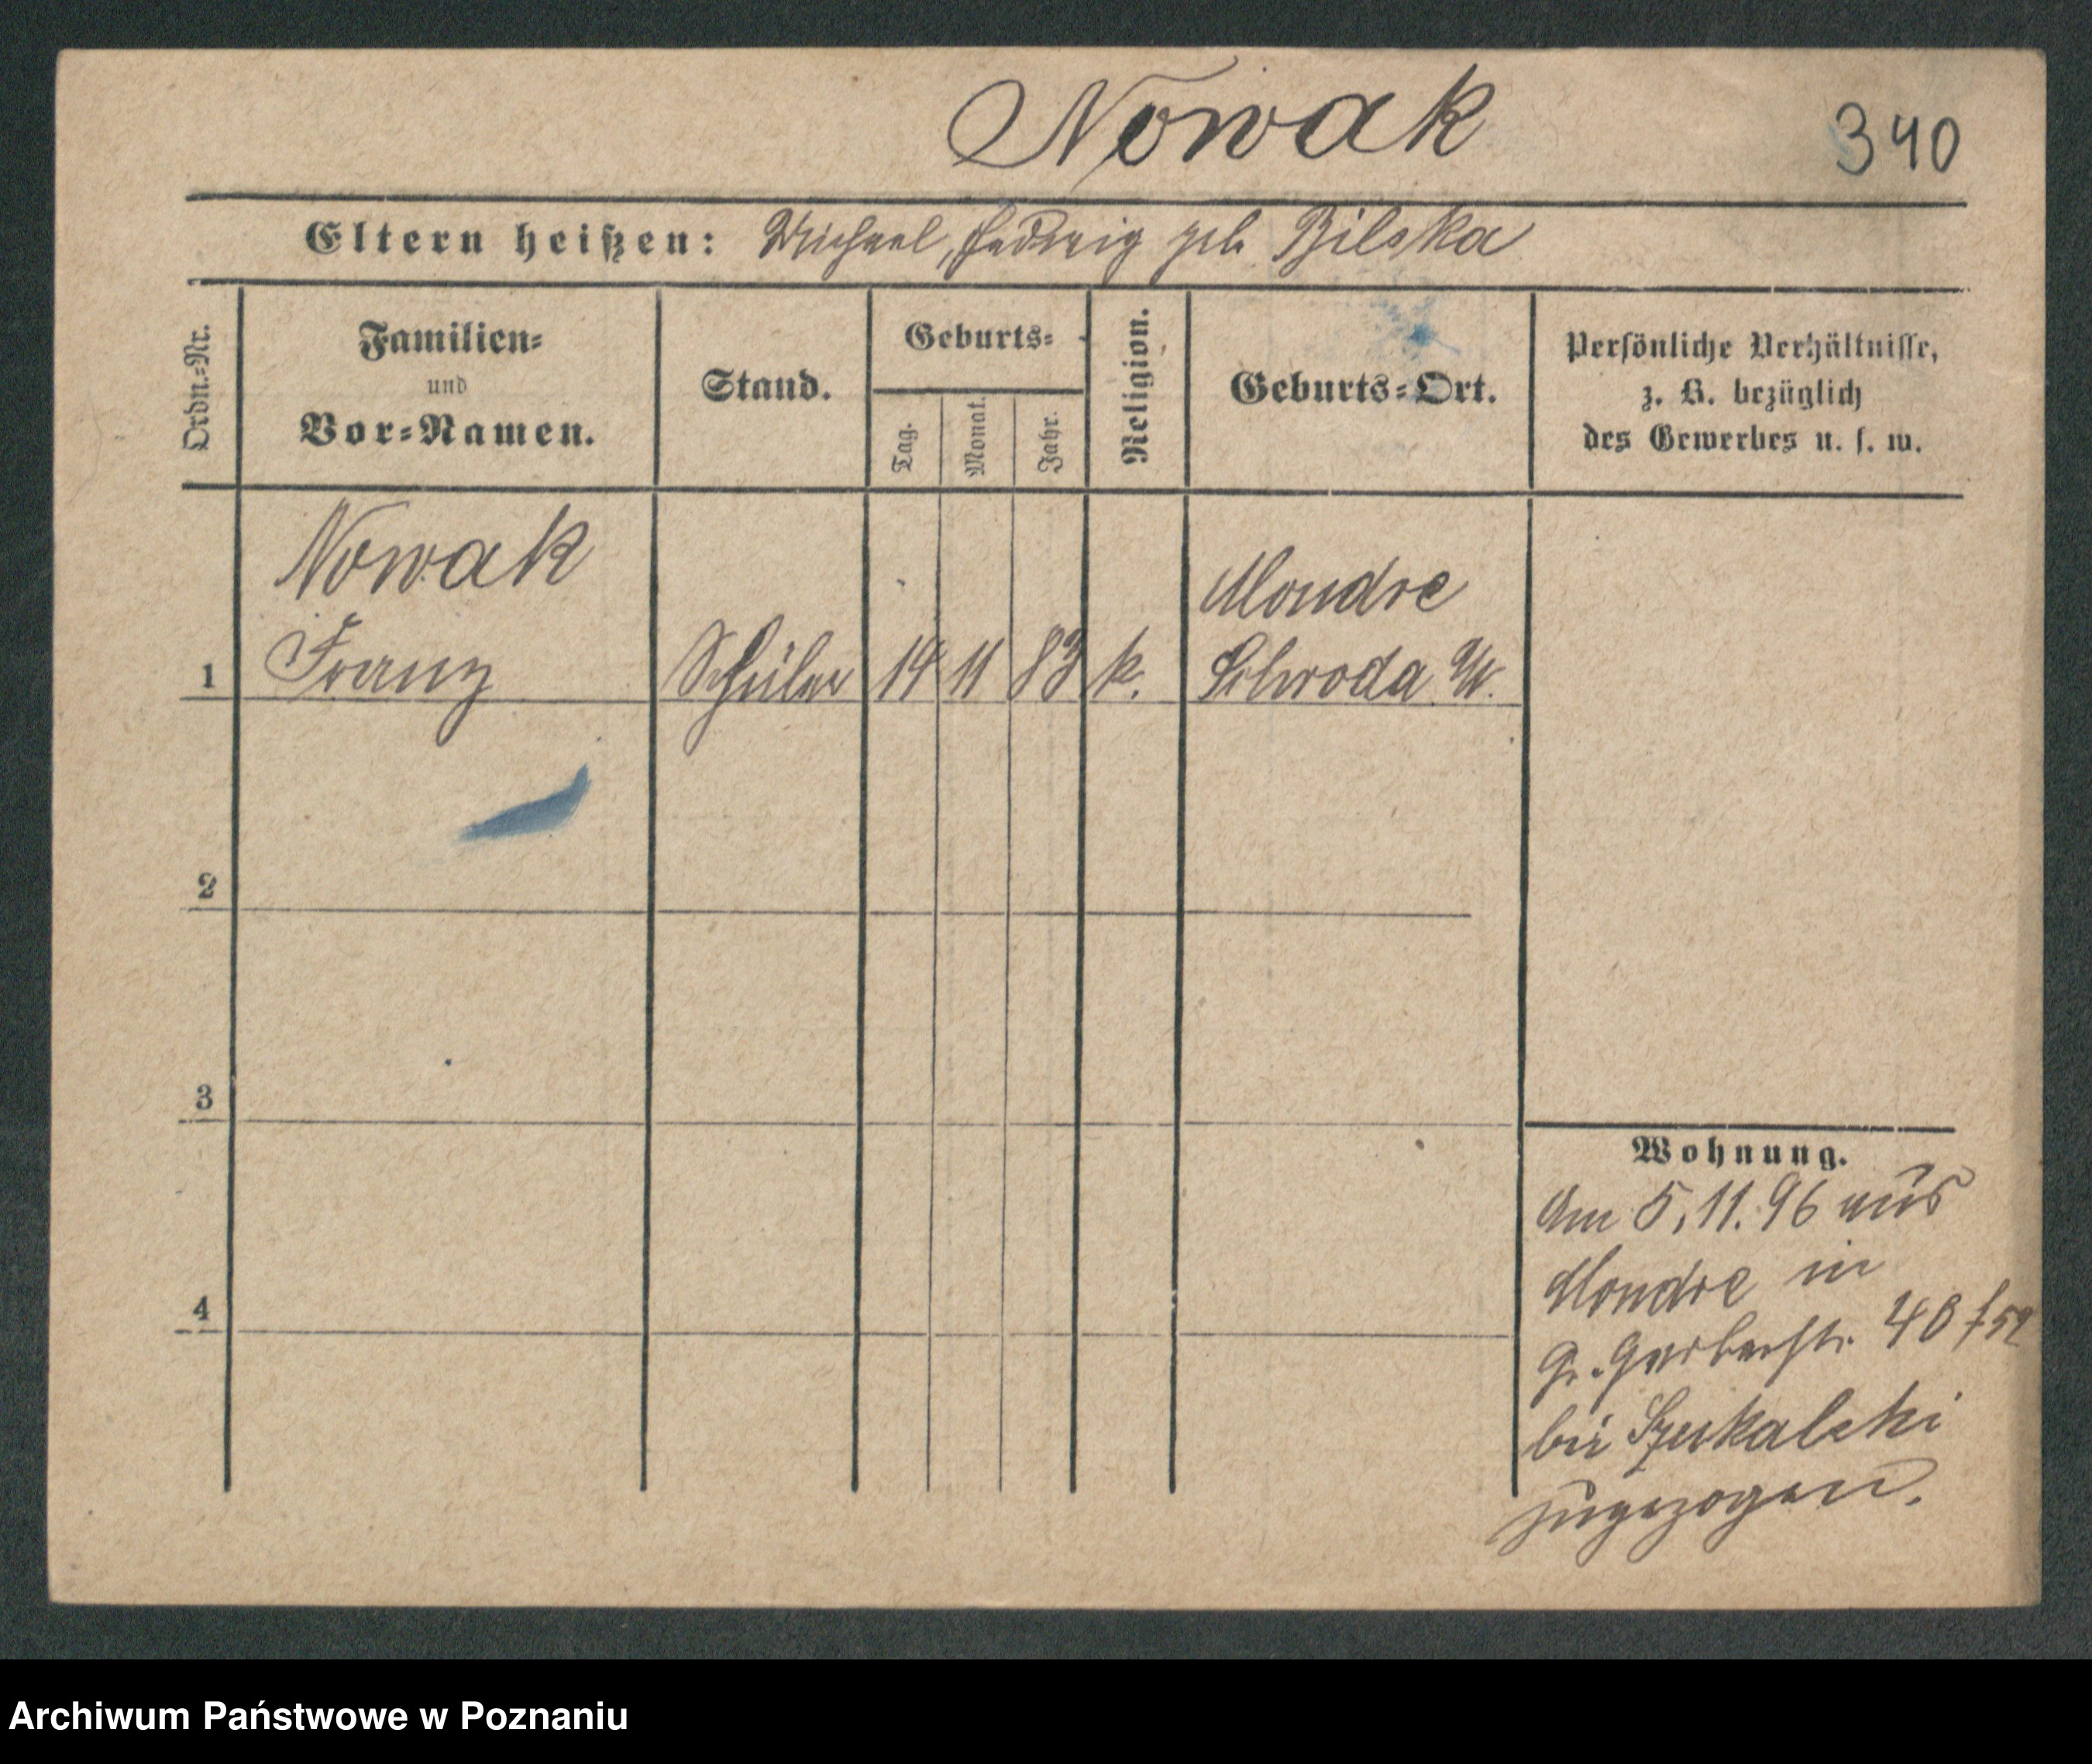 Nowak
340
Eltern heißen: Michael, Hedwig geb. Bilska
Ordn.-Nr.
Familien-
und
Vor-Namen.
Stand.
Geburts-
Tag.
Monat.
Jahr.
Religion.
Geburts-Ort.
Persönliche Verhältnisse,
z. B. bezüglich
des Gewerbes u. s. w.
Nowak
Mondre
1 Franz Schüler 14 11 83 k. Schroda
2
3
4
Wohnung.
Am 5.11.96 aus
Mondre in
Gr. Gerberstr. 40
bei
zugezogen.
Archiwum Państwowe w Poznaniu